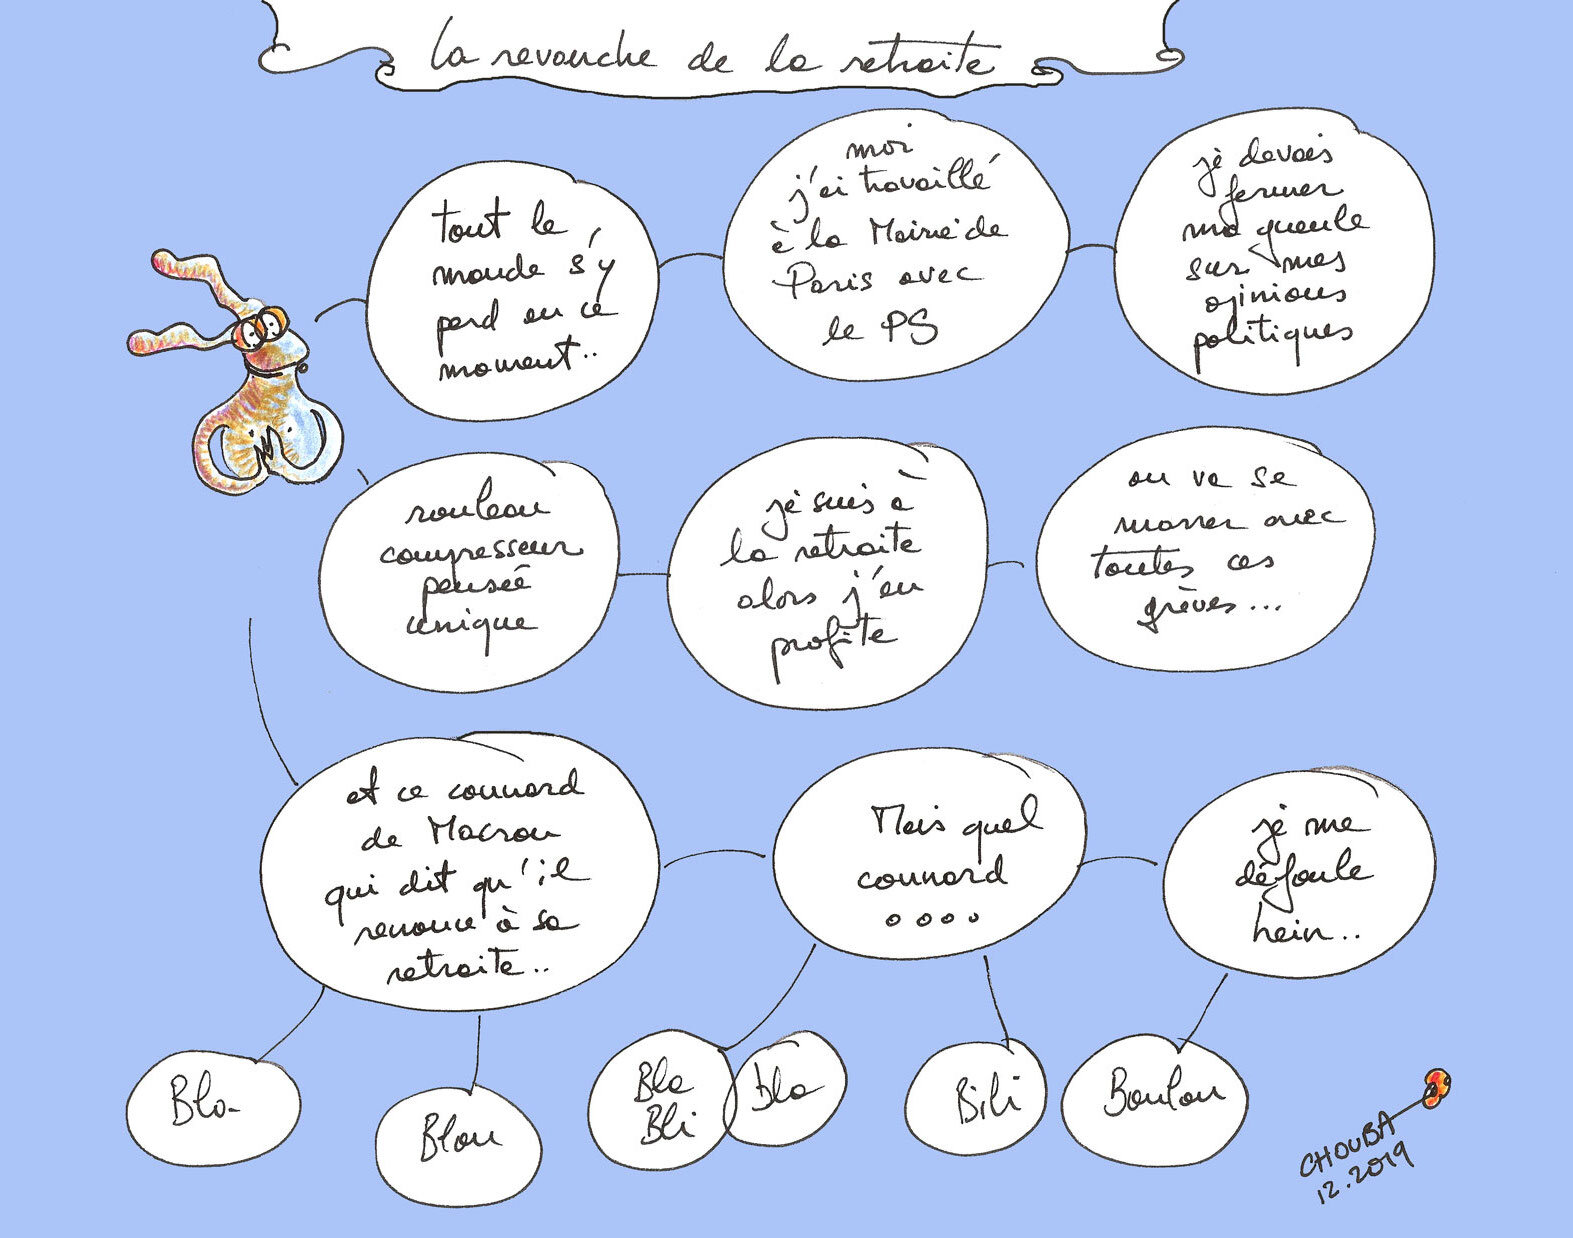 la revanche de la retraite
tout le
monde s'y
perd en ce
moment..
moi
j'ai travaillé
à la Mairie de
Paris avec
le PS
je devais
fermer
ma gueule
sur mes
opinions
politiques
rouleau
compresseur
pensée
unique
je suis à
la retraite
alors j'en
profite
on va se
marrer avec
toutes ces
grèves...
et ce connard
de Macron
qui dit qu'il
renonce à sa
retraite..
Mais quel
connard
....
je me
défoule
hein..
Bla-
Blou
Bla
Bli
bla
Bili
Boulou
CHOUBA
12.2019